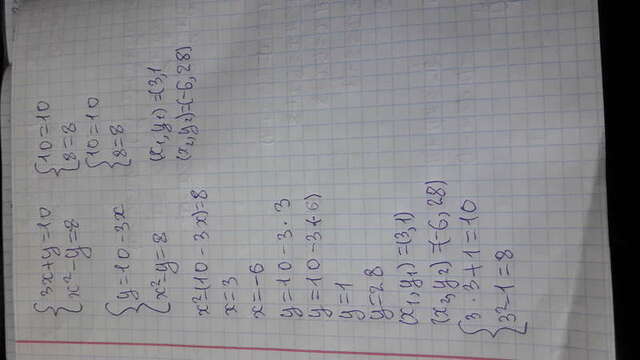 {3x+y=10
{x²-y=8
{y=10-3x
{x²-y=8
x²-(10-3x)=8
x=3
x=-6
y=10-3·3
y=10-3(-6)
y=1
y=28
(x₁,y₁)=(3,1)
(x₂,y₂)=(-6,28)
{3·3+1=10
{3²-1=8
{10=10
{8=8
{10=10
{8=8
(x₁,y₁)=(3,1
(x₂,y₂)=(-6,28)